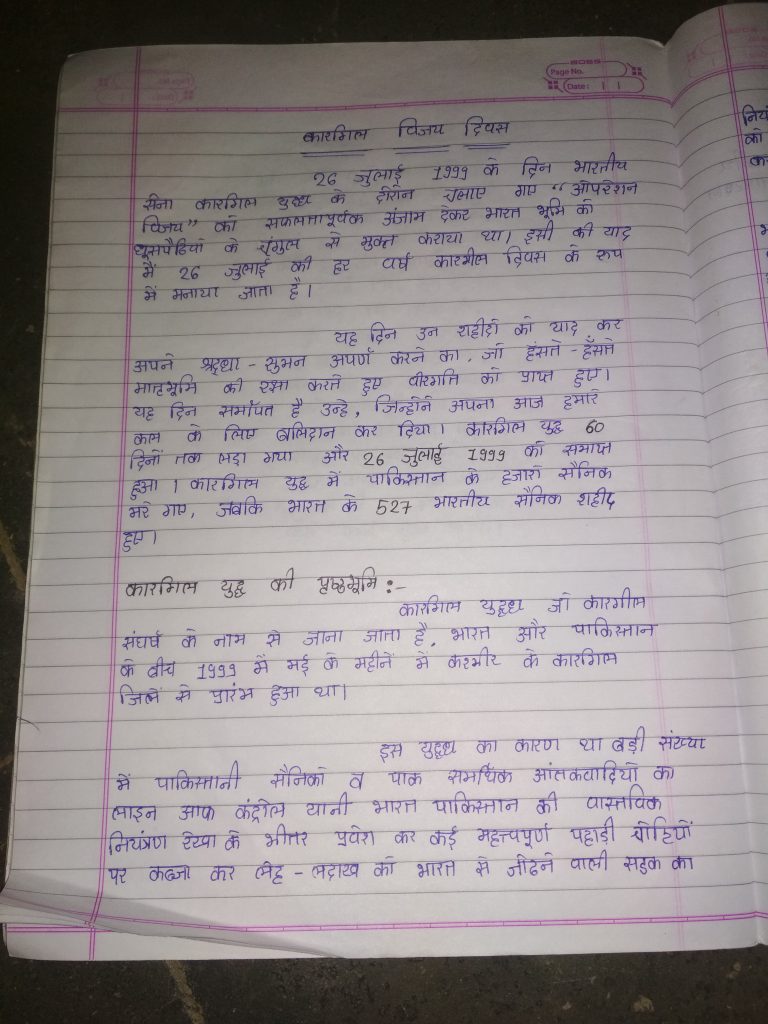 BOSS
Page No.
Date: | |
कारगिल विजय दिवस
26 जुलाई 1999 के दिन भारतीय
सेना कारगिल युध्ध के दौरान चलाए गए "ऑपरेशन
विजय" को सफलतापूर्वक अंजाम देकर भारत भूमि को
घूसपैठियों के चंगुल से मुक्त कराया था। इसी की याद
में 26 जुलाई की हर वर्ष कारगील दिवस के रूप
में मनाया जाता है।
यह दिन उन शहीदों को याद कर
अपने श्रद्धा - सुमन अपर्ण करने का, जो हंसते - हँसते
मातृभूमि की रक्षा करते हुए वीरगति को प्राप्त हुए।
यह दिन समर्पित है उन्हे, जिन्होंने अपना आज हमारे
कल के लिए बलिदान कर दिया। कारगिल युद्ध 60
दिनों तक लडा गया और 26 जुलाई 1999 को समाप्त
हुआ। कारगिल युद्ध में पाकिस्तान के हजारो सैनिक
मारे गए, जबकि भारत के 527 भारतीय सैनिक शहीद
हुए।
कारगिल युद्ध की पृष्ठभूमि :-
कारगिल युद्धध जो कारगील
संघर्ष के नाम से जाना जाता है, भारत और पाकिस्तान
के बीच 1999 में मई के महीनें में कश्मीर के कारगिल
जिलें से प्रारंभ हुआ था।
इस युद्धध का कारण था बड़ी संख्या
में पाकिस्तानी सैनिको व पाक समर्थिक आंतकवादियो का
लाइन आफ कंट्रोल यानी भारत पाकिस्तान की वास्तविक
नियंत्रण रेखा के भीतर प्रवेश कर कई महत्त्वपूर्ण पहाड़ी चोटियों
पर कब्जा कर लेह - लद्दाख को भारत से जोडने वाली सड़क का
नियं
को